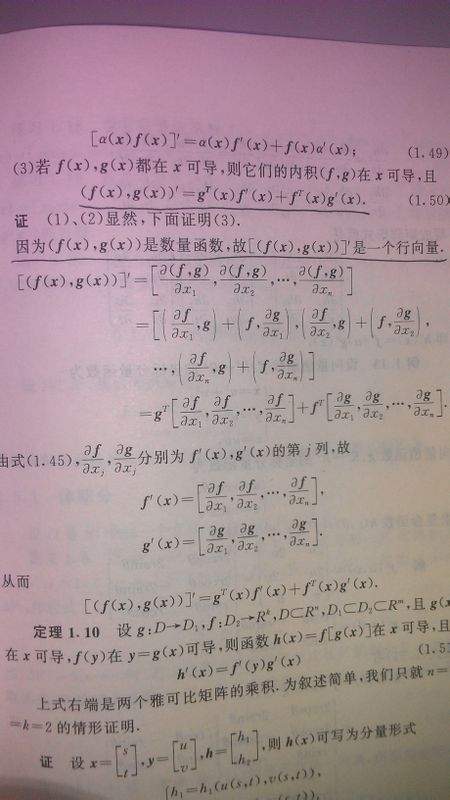 [α(x)f(x)]'=α(x)f'(x)+f(x)α'(x); (1.49)
(3)若 f(x),g(x)都在 x 可导,则它们的内积(f,g)在 x 可导,且
(f(x),g(x))'=gᵀ(x)f'(x)+fᵀ(x)g'(x). (1.50)
证 (1)、(2)显然,下面证明(3).
因为(f(x),g(x))是数量函数,故[(f(x),g(x))]'是一个行向量.
[(f(x),g(x))]'=[∂(f,g)/∂x₁,∂(f,g)/∂x₂,…,∂(f,g)/∂xₙ]
=[(∂f/∂x₁,g)+(f,∂g/∂x₁),(∂f/∂x₂,g)+(f,∂g/∂x₂),
…,(∂f/∂xₙ,g)+(f,∂g/∂xₙ)]
=gᵀ[∂f/∂x₁,∂f/∂x₂,…,∂f/∂xₙ]+fᵀ[∂g/∂x₁,∂g/∂x₂,…,∂g/∂xₙ].
由式(1.45),∂f/∂xⱼ,∂g/∂xⱼ分别为 f'(x),g'(x)的第 j 列,故
f'(x)=[∂f/∂x₁,∂f/∂x₂,…,∂f/∂xₙ],
g'(x)=[∂g/∂x₁,∂g/∂x₂,…,∂g/∂xₙ].
从而
[(f(x),g(x))]'=gᵀ(x)f'(x)+fᵀ(x)g'(x).
定理1.10 设 g:D→D₁,f:D₂→Rᵏ,D⊂Rⁿ,D₁⊂D₂⊂Rᵐ,且 g(x
在 x 可导,f(y)在 y=g(x)可导,则函数 h(x)=f[g(x)]在 x 可导,且
h'(x)=f'(y)g'(x) (1.5
上式右端是两个雅可比矩阵的乘积.为叙述简单,我们只就 n=
=k=2 的情形证明.
证 设 x=[s t],y=[u v],h=[h₁ h₂],则 h(x)可写为分量形式
{h₁=h₁(u(s,t),v(s,t)),